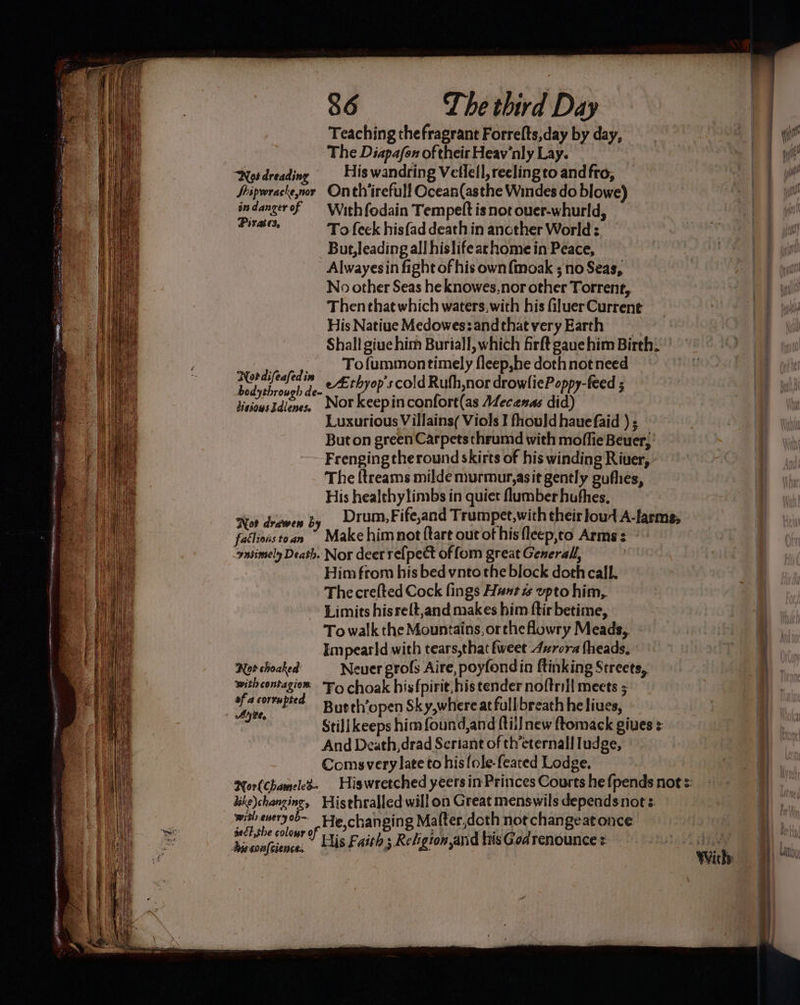 86 The third Day
Teaching the fragrant Forreſts, day by day,
The Diapaſon of their Heav'nly Lay.
Not dreading
ſhipwracke, nor
in danger of
Pirates,
His wandring Veſſell, reeling to and fro,
On th'irefull Ocean (as the Windes do blowe)
With ſodain Tempeſt is not ouer-whurld,
To ſeek his ſad death in another World:
But, leading all his life at home in Peace,
Alwayes in ſight of his own ſmoak; no Seas,
No other Seas he knowes, nor other Torrent,
Then that which waters, with his ſiluer Current
His Natiue Medowes: and that very Earth
Shall giue him Buriall, which firſt gaue him Birth.
Not diſeaſed in
body through de-
litious Idlenes.
To ſummon timely ſleep, he doth not need
Æthyop's cold Ruſh, nor drowſie Poppy-ſeed;
Nor keep in conſort (as Mecænas did)
Luxurious Villains (Viols I ſhould haue ſaid);
But on green Carpets thrumd with moſſie Beuer,
Frenging the round skirts of his winding Riuer,
The ſtreams milde murmur, as it gently guſhes,
His healthy limbs in quiet ſlumber huſhes.
Not drawen by
factious to an
vntimely Death.
Drum, Fife, and Trumpet, with their loud A-larms,
Make him not ſtart out of his ſleep, to Arms:
Nor deer reſpect of ſom great Generall,
Him from his bed vnto the block doth call.
The creſted Cock ſings Hunt is vp to him,
Limits his reſt, and makes him ſtir betime,
To walk the Mountains, or the flowry Meads,
Impearld with tears, that ſweet Aurora ſheads.
Not choaked
with contagion
of a corrupted
Ayre,
Neuer groſs Aire, poyſond in ſtinking Streets,
To choak his ſpirit, his tender noſtrill meets;
But th'open Sky, where at full breath he liues,
Still keeps him ſound, and ſtill new ſtomack giues:
And Death, drad Seriant of th'eternall Iudge,
Coms very late to his ſole-ſeated Lodge.
Nor (Chameleō-
like) changing,
with euery ob-
iect, the colour of
his conſcience.
His wretched yeers in Princes Courts he ſpends not:
His thralled will on Great mens wils depends not:
He, changing Maſter, doth not change at once
His Faith; Religion, and his God renounce:
With